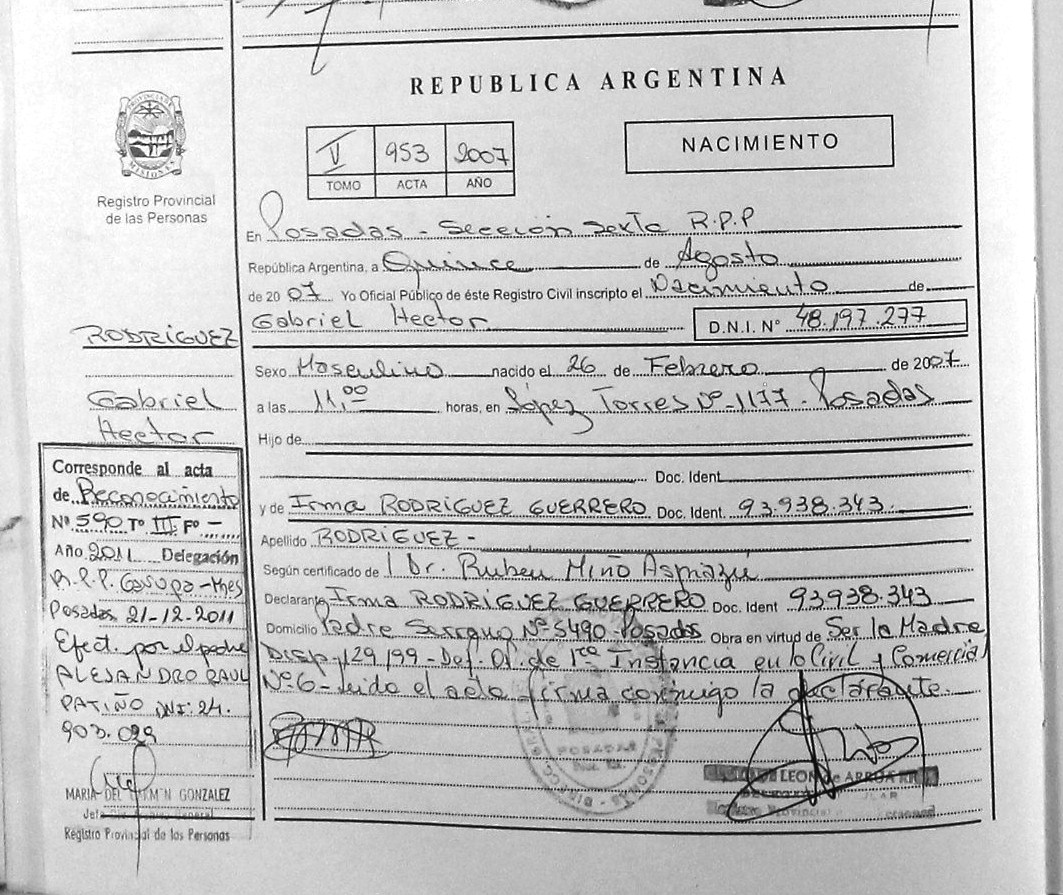 REPUBLICA ARGENTINA
PROVINCIA DE
MISIONES
Registro Provincial
de las Personas
V 953 2007
TOMO ACTA AÑO
NACIMIENTO
En Posadas - Sección Sexta R.P.P
República Argentina, a Quince de Agosto
de 2007 Yo Oficial Público de éste Registro Civil inscripto el Nacimiento de
Gabriel Hector D.N.I. N° 48.197.277
Sexo Masculino nacido el 26 de Febrero de 2007
a las 11,00 horas, en López Torres N°-1177- Posadas
Hijo de
Doc. Ident.
y de Irma RODRÍGUEZ GUERRERO Doc. Ident. 93.938.343.
Apellido RODRÍGUEZ-
Según certificado de l Dr. Ruben Miño Aspiazú
Declarante Irma RODRÍGUEZ GUERRERO Doc. Ident 93938.343
Domicilio Padre Serrano N° 5490-Posadas Obra en virtud de Ser la Madre
Disp. 129/99-Def. Of. de 1ra Instancia en lo Civil y Comercial
N° 6-leido el acta firma conmigo la declarante.
RODRÍGUEZ
Gabriel
Hector
Corresponde al acta
de Reconocimiento
N° 590 T° III F° -
Año 2011 Delegación
R.P.P. Garupa-Mnes
Posadas 21-12-2011
Efect. por el padre
ALEJANDRO RAUL
PATIÑO DNI: 24.
903.029
MARIA DEL CARMEN GONZALEZ
Registro Provincial de las Personas
POSADAS
LEON de ARRUA